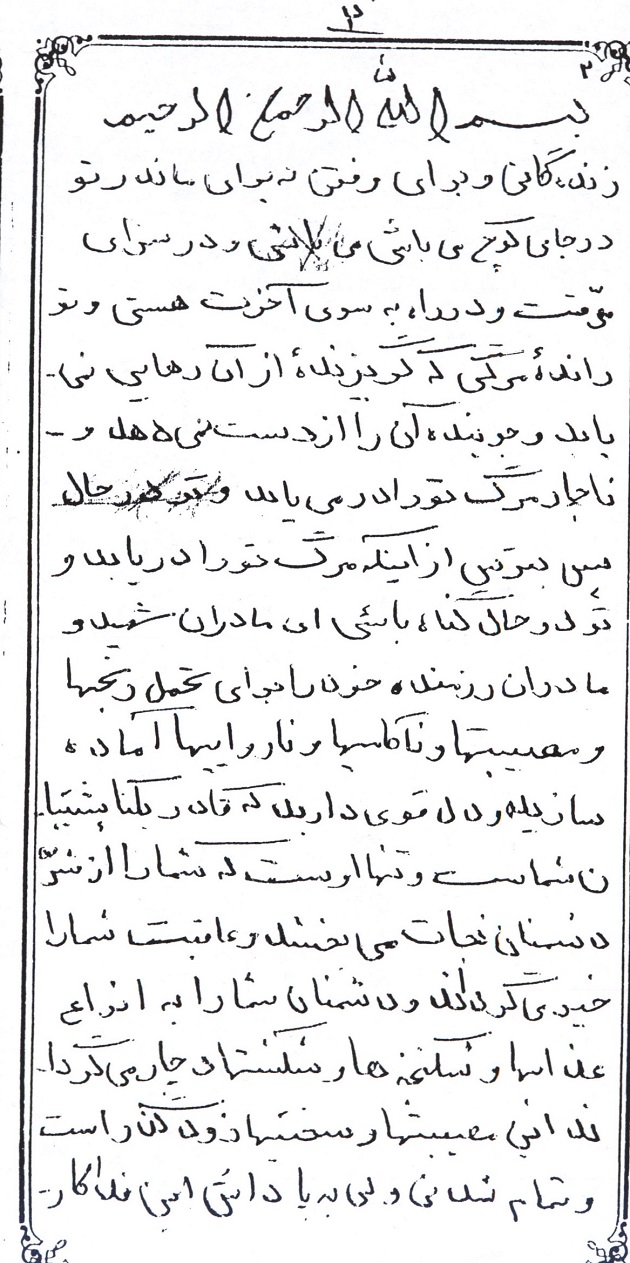 ۲
۲
بسم الله الرحمن الرحیم
زندگانی و برای رفتن نه برای ماندن تو
در جای کوچ می باشی می باشی و در سرای
موقت و در راه به سوی آخرت هستی و تو
راندهٔ مرگی که گریزندهٔ از آن رهایی نمی-
یابد و جوینده آن را از دست نمی دهد و -
ناچار مرگ تو را در می یابد و تو در حال
پس بترس از اینکه مرگ تو را دریابد و
تو در حال گناه باشی ای مادران شهید و
مادران رزمنده خود را برای تحمل رنجها
و مصیبتها و ناکامیها و نارواییها آماده
سازید و دل قوی دارید که قادر یکتا پشتیبا
ن شماست و تنها اوست که شما را از شرّ
دشمنان نجات می بخشد و عاقبت شما را
خیر می گرداند و دشمنان شما را به انواع
عذابها و شکنجه ها و شکستها دچار می گردا-
ند این مصیبتها و سختیها زودگذر است
و تمام شدنی ولی به پاداش این فداکار-